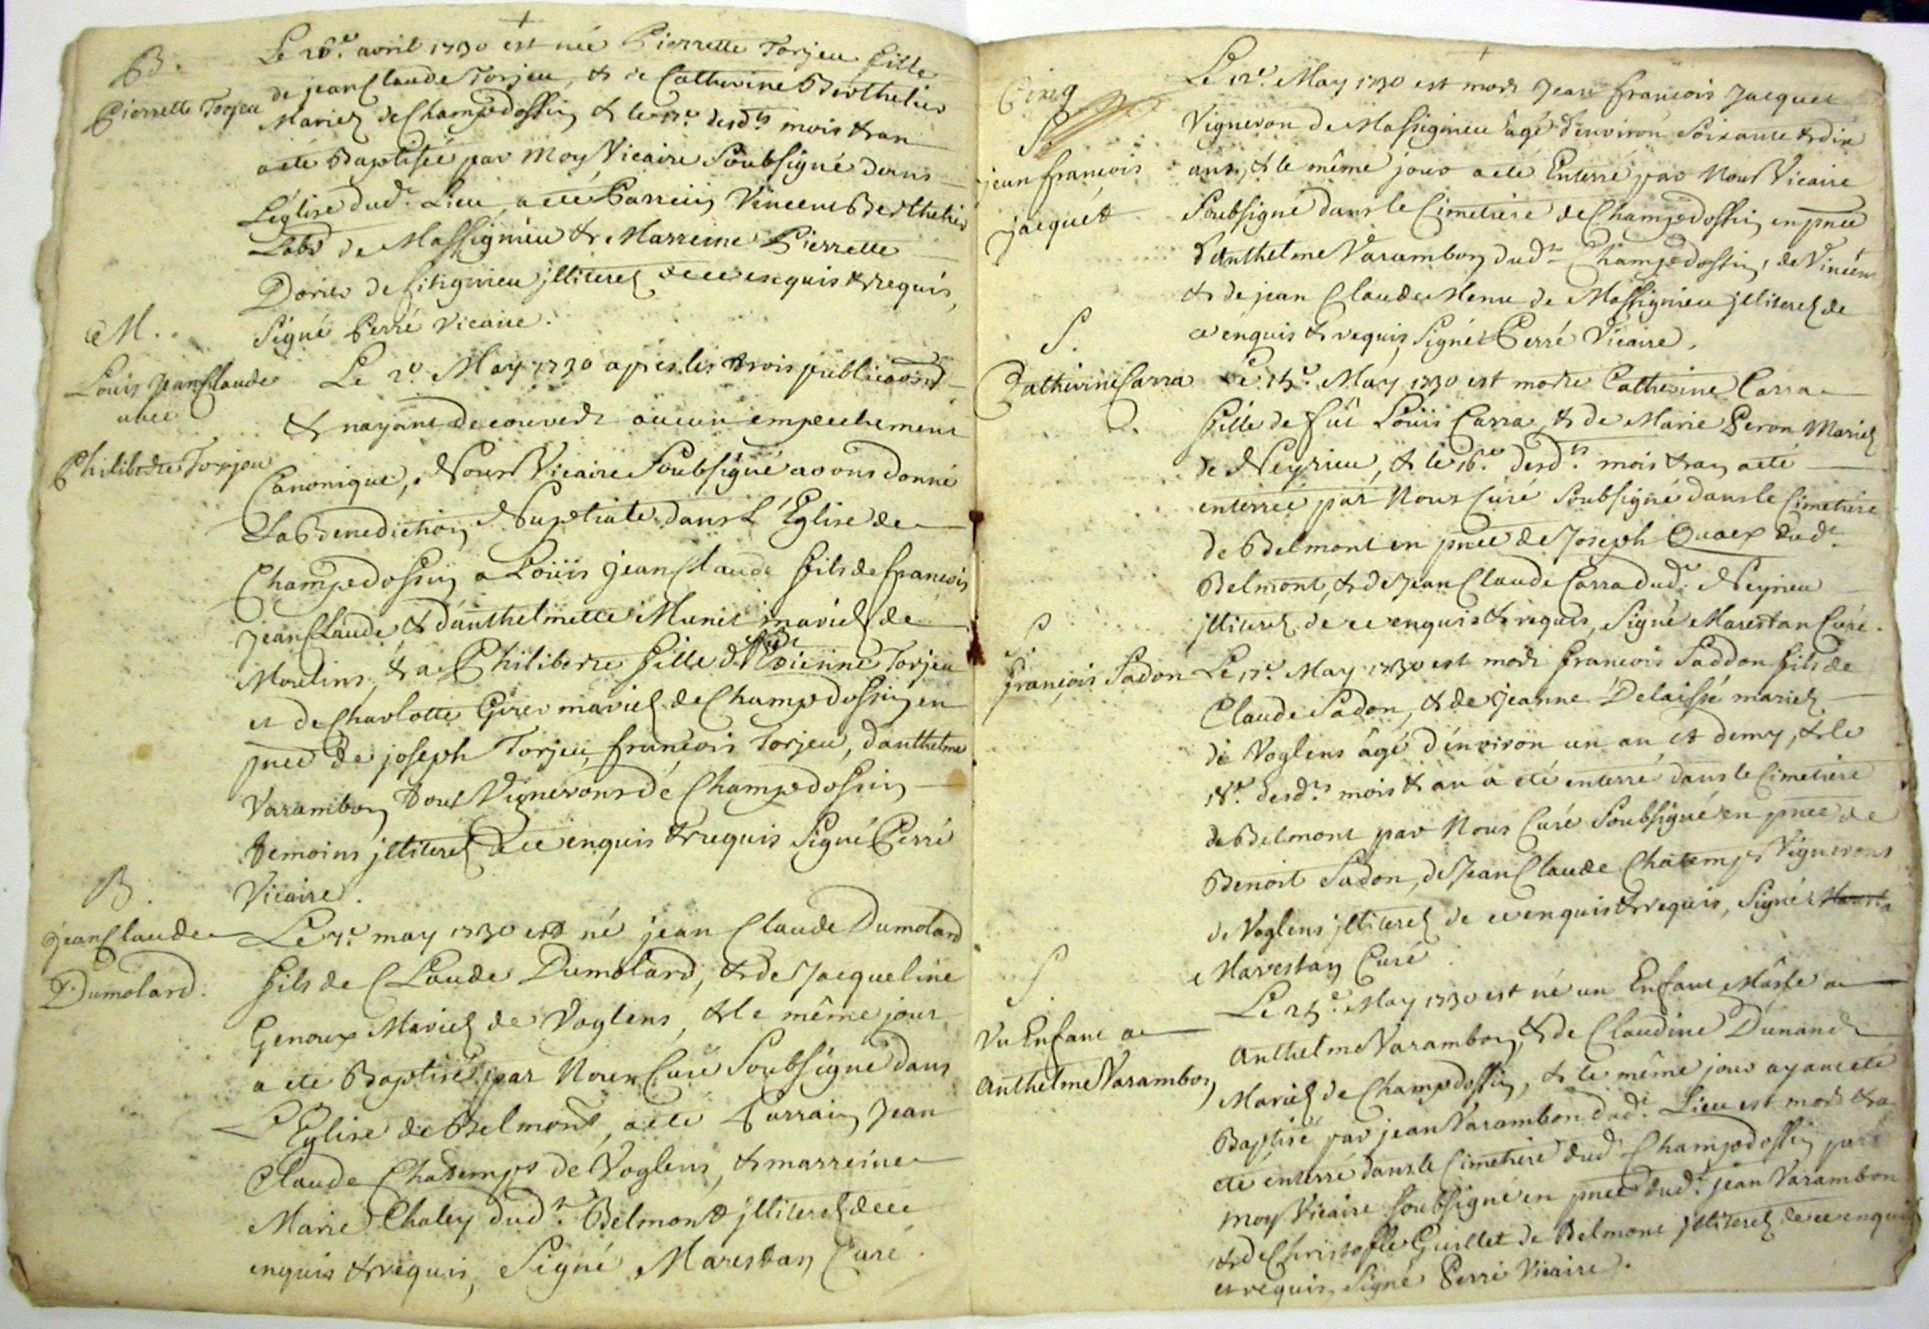 B.
Pierrette Torjeu
Le 26e. avril 1730 est née Pierrette Torjeu fille
de jean Claude Torjeu, & de Catherine Berthelier
Mariez de Champdossin & le desdts mois & an
a eté Baptisée par Moy Vicaire Soubsigné dans
L'église dud. Lieu, a eté Parrein Vincent Berthelier
Labr de Massignieu & Marreine Pierrette
de jlliterez de ce enquis & requis,
Signé Perré Vicaire.
M.
Louis Jean Claude
avec
Philiberte Torjeu
Le 2e. May 1730 apres les trois publicaons
& n'ayant decouvert aucun empechement
Canonique, Nous Vicaire Soubsigné avons donné
La Benediction Nuptiale dans L'Eglise de
Champdossin a Loüis jean Claude fils de francois
jean Claude, & d'anthelmette Munet mariez de
Moulins, & a Philiberte fille d' Torjeu
et de Charlotte mariez de Champdossin en
pnce de joseph Torjeu, françois Torjeu, d'anthelme
Varambon tous Vignerons de Champdossin
temoins jlliterez de ce enquis & requis Signé Perré
Vicaire.
B.
jean Claude
Dumolard.
Le 7e. may 1730 est né jean Claude Dumolard
fils de Claude Dumolard, & de Jacqueline
Genoux Mariez de Voglens, & le même jour
a eté Baptisé par Nous Curé Soubsigné dans
L'Eglise de Belmont, a eté Parrain Jean
Claude Chatemps de Voglens, & marreine
Marie Chaley dudt. Belmont jlliterez de ce
enquis & requis, Signé Marestan Curé.
Cinq
S.
jean françois
jacquet
Le 12e. May 1730 est mort Jean francois Jacquet
Vigneron de Massignieu âgé d'environ Soixante & dix
ans, & le même jour a eté Enterré par Nous Vicaire
Soubsigné dans le Cimetiere de Champdossin en pnce
d'Anthelme Varambon dudt Champdossin, de Vincent
& de jean Claude Menu de Massignieu jlliterez de
ce enquis & requis, Signé Perré Vicaire.
S.
Catherine Carra
Le 15e. May 1730 est morte Catherine Carra
fille de fût Loüis Carra, & de Marie Peron Mariez
de Neyrieu, & le 16e desdts mois & an a eté
enterrée par Nous Curé Soubsigné dans le Cimetiere
de Belmont en pnce de Joseph Quaex dudt.
Belmont, & de Jean Claude Carra dudt. Neyrieu
jlliterez de ce enquis & requis, Signé Marestan Curé.
S.
françois Sadon
Le 17e. May 1730 est mort françois Saddon fils de
Claude Sadon, & de Jeanne Delaissé mariez
de Voglens âgé d'environ un an et demy, & le
18e. desdts mois & an a eté enterré dans le Cimetiere
de Belmont par Nous Curé Soubsigné en pnce de
Benoit Sadon, de Jean Claude Chatemps Vignerons
de Voglens jlliterez de ce enquis & requis, Signé
Marestan Curé.
S.
Vn Enfant a
Anthelme Varambon
Le 25e. May 1730 est né un Enfant Mâsle a
Anthelme Varambon, & de Claudine Dunand
Mariez de Champdossin, & le même jour ayant eté
Baptisé par jean Varambon dudt. Lieu est mort & a
eté enterré dans le Cimetiere dudt Champdossin par
moy Vicaire Soubsigné en pnce dudt. jean Varambon
& de Christofle Guillet de Belmont jlliterez de ce enquis
et requis, Signé Perré Vicaire.